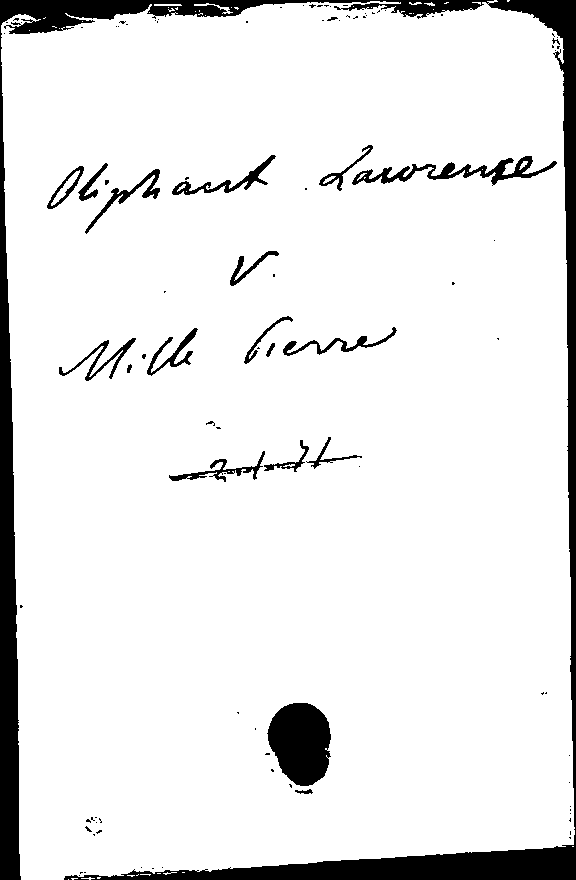 Oliphant Lawrence
V.
Mille Pierre
2.1.71